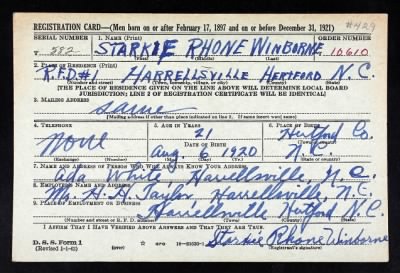 #429
REGISTRATION CARD—(Men born on or after February 17, 1897 and on or before December 31, 1921)
SERIAL NUMBER 1. NAME (Print) ORDER NUMBER
T 582 STARKIE RHONE WINBORNE 10610
(First) (Middle) (Last)
2. PLACE OF RESIDENCE (Print)
R.F.D #1 HARRELLSVILLE HERTFORD N.C.
(Number and street) (Town, township, village, or city) (County) (State)
[THE PLACE OF RESIDENCE GIVEN ON THE LINE ABOVE WILL DETERMINE LOCAL BOARD
JURISDICTION; LINE 2 OF REGISTRATION CERTIFICATE WILL BE IDENTICAL]
3. MAILING ADDRESS
same
[Mailing address if other than place indicated on line 2. If same insert word same]
4. TELEPHONE 5. AGE IN YEARS 6. PLACE OF BIRTH
21 Hertford Co.
None DATE OF BIRTH (Town or county)
Aug 6 1920 N.C.
(Exchange) (Number) (Mo.) (Day) (Yr.) (State or country)
7. NAME AND ADDRESS OF PERSON WHO WILL ALWAYS KNOW YOUR ADDRESS
Ada White, Harrellsville, N.C.
8. EMPLOYER'S NAME AND ADDRESS
Mr. H. D. Taylor, Harrellsville, N.C.
9. PLACE OF EMPLOYMENT OR BUSINESS
Harrellsville Hertford N.C.
(Number and street or R. F. D. number) (Town) (County) (State)
I AFFIRM THAT I HAVE VERIFIED ABOVE ANSWERS AND THAT THEY ARE TRUE.
D. S. S. Form 1
(Revised 1-1-42) (over) Starkie Rhone Winborne
(Registrant's signature)